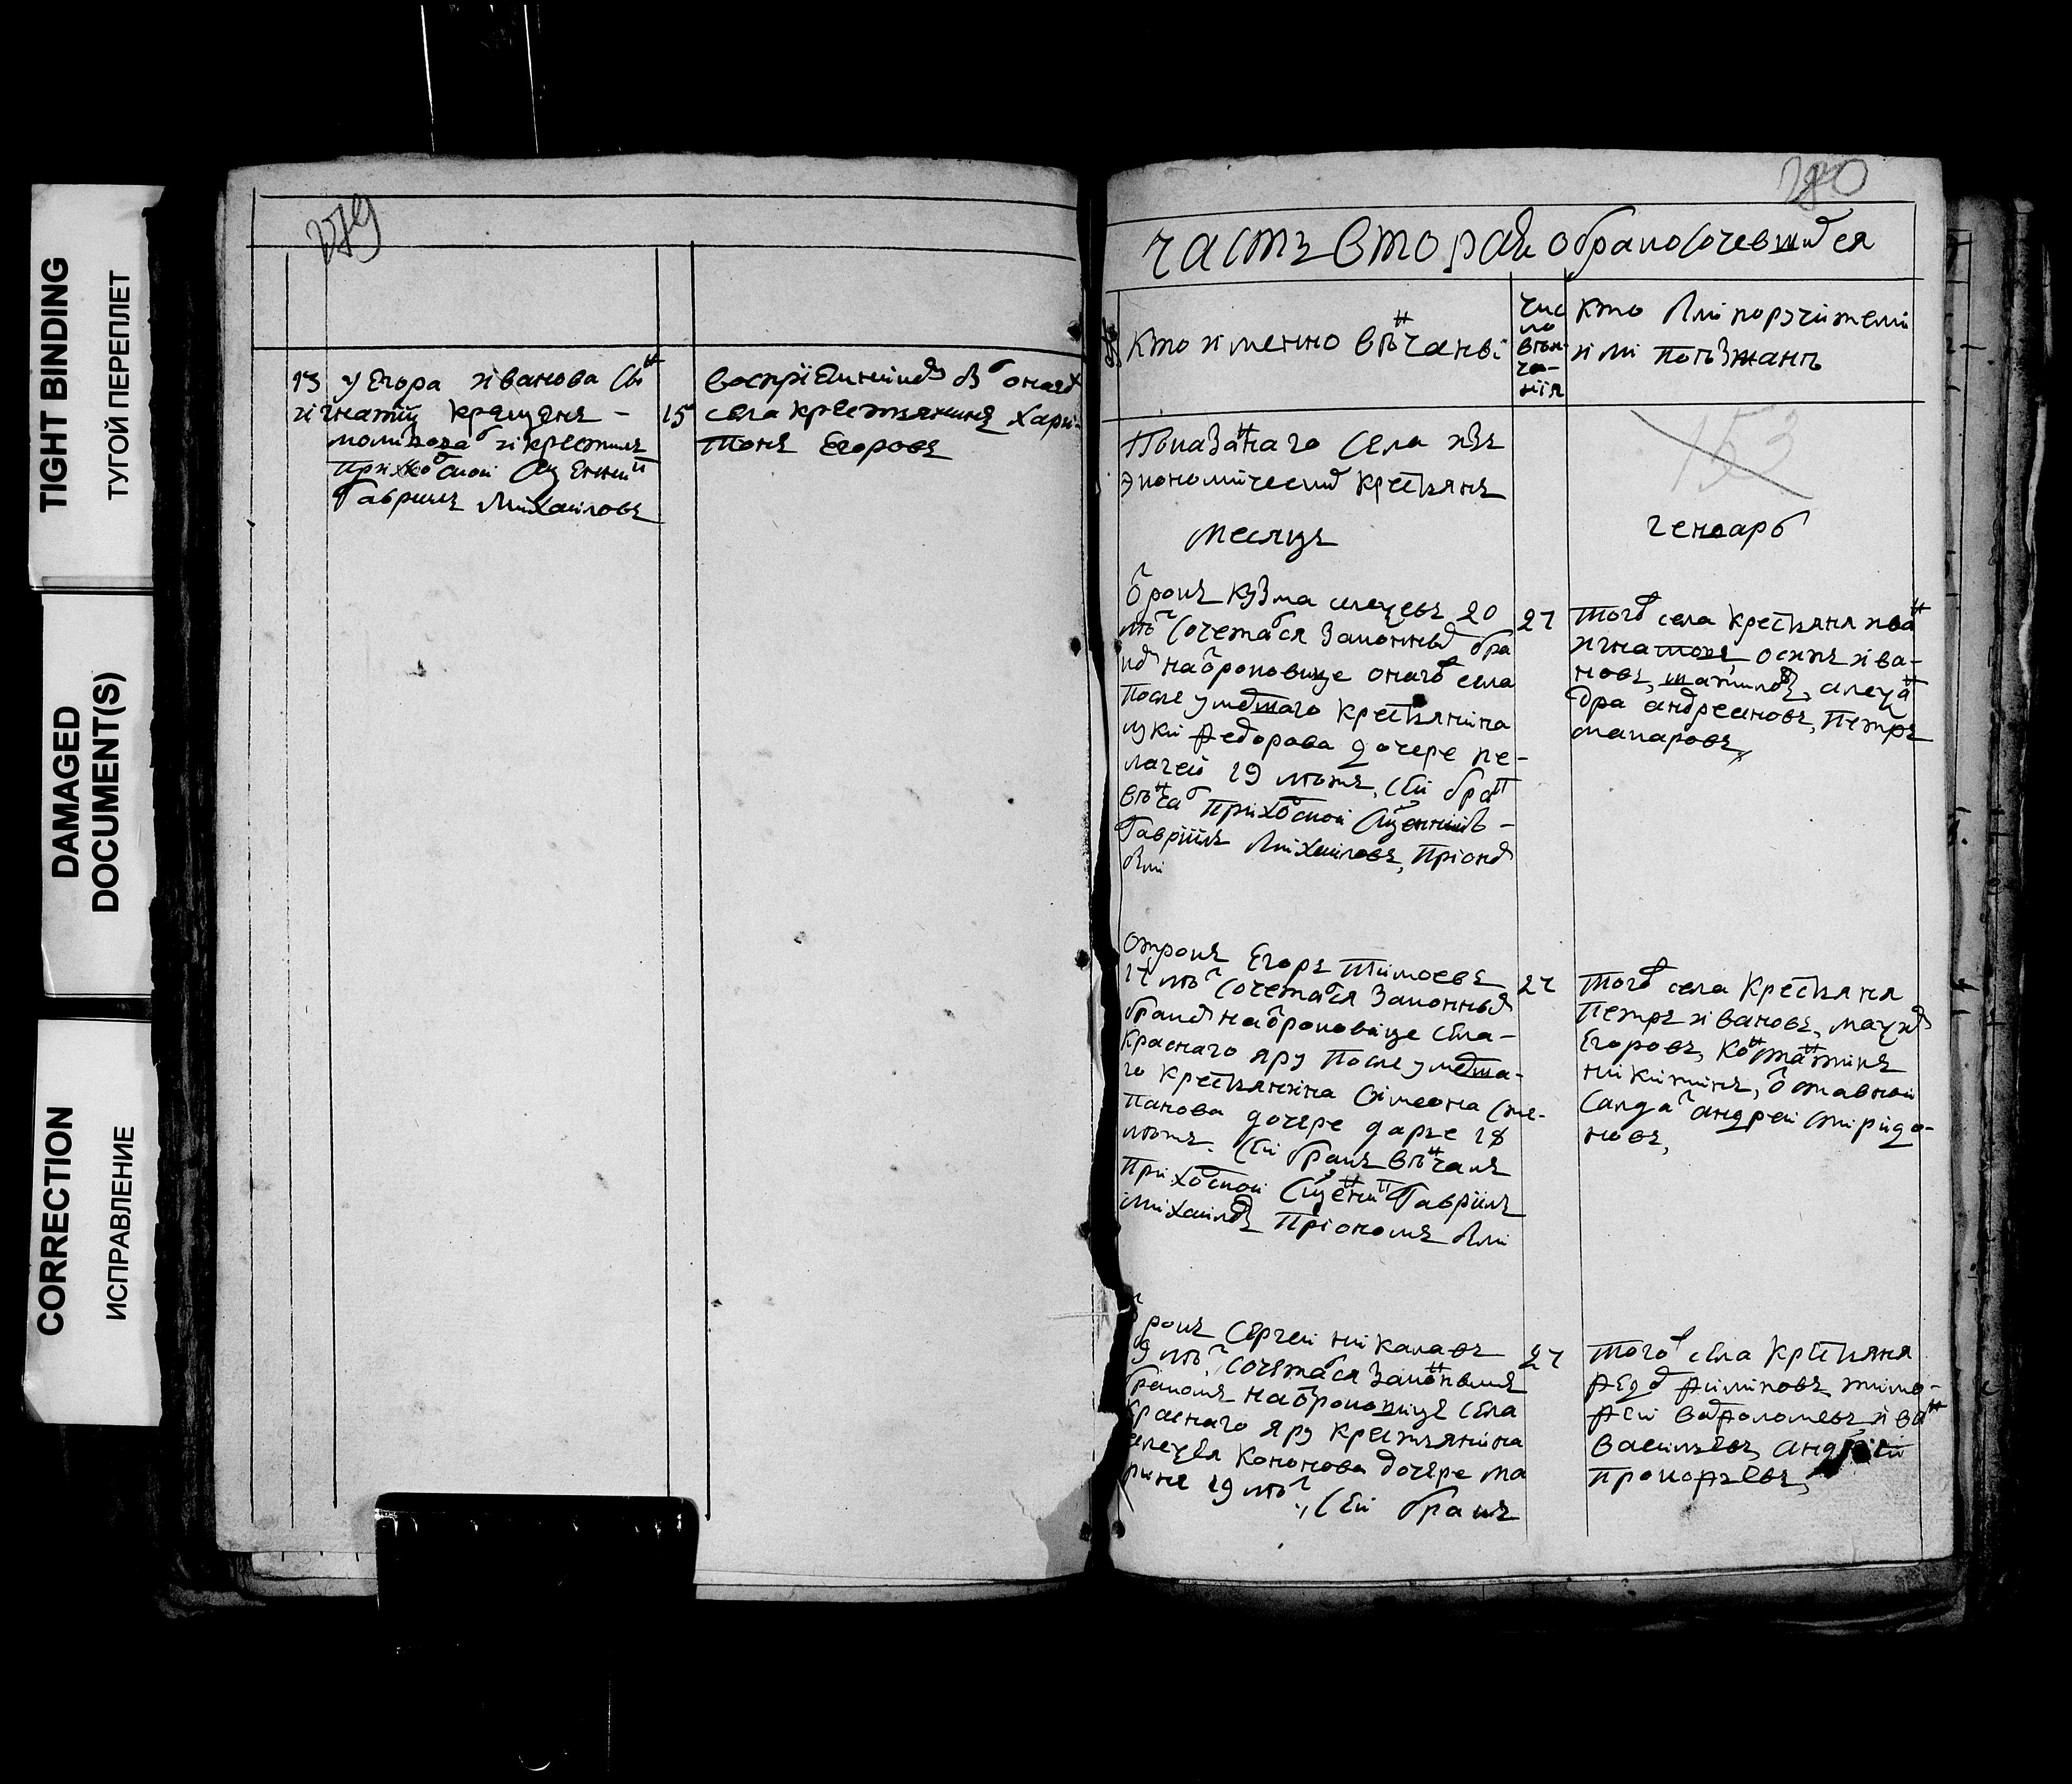 TIGHT BINDING
ТУГОЙ ПЕРЕПЛЕТ
DAMAGED
DOCUMENT(S)
CORRECTION
ИСПРАВЛЕНИЕ
279
13 у Егора иванова сын
игнатiй крещенъ 15
молитвовал и крестилъ
приходской священник
Гаврiилъ Михаиловъ
воспрiемником был онаго
села крестьянинъ Хари-
тонъ Егоровъ
280
часть вторая о бракосочевшихся
кто именно венчаны
число венчанiя
кто были поручители
или поезжанъ
Показаннаго села изъ
экономическихъ крестьянъ
153
месяцъ генварь
отрокъ кузма 20
летъ сочетался законным бра
ком на отроковице онаго села
после умершаго крестьянина
луки федорова дочере пе-
лагеи 19 летъ, сей брак
венчал приходской священникъ
Гаврiилъ Михаиловъ, при оном
были
27
того села крестьяня иван
игнатовъ, осипъ ива-
новъ, алексан
дра андреяновъ, петръ
макаровъ,
отрокъ Егоръ Тимоеевъ
17 летъ сочетался законным
браком на отроковице села
Краснаго яру после умерша-
го крестьянина Симеона сте-
панова дочере дарье 18
летъ. Сей бракъ венчалъ
приходской священник Гаврiилъ
михаиловъ при ономъ были
27
того села крестьяня
петръ ивановъ, максим
Егоровъ, константинъ
никитинъ, отставной
салдат андреи спиридо-
новъ,
отрокъ Сергеи никалавъ
19 летъ, сочетался законнымъ
бракомъ на отроковице села
Краснаго яру крестьянина
алексея Кононова дочере ма
рине 19 летъ
, Сей бракъ
27
того села крестьяня
федор филиповъ, тимо-
фей варфоломеевъ иван
васильевъ, андрей
прокофьевъ,